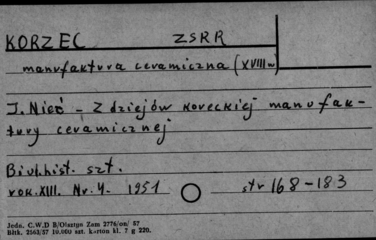 KORZEC ZSRR
manufaktura ceramiczna (XVIII w)
J. Nieć - Z dziejów koreckiej manufak-
tury ceramicznej
Biul. hist. szt.
rok. XIII. Nr. 4. 1951 str 168-183
Jedn. C.W.D B/Olsztyn Zam 2776/on/ 57
Bltk. 2563/57 10.000 szt. karton kl. 7 g 220.